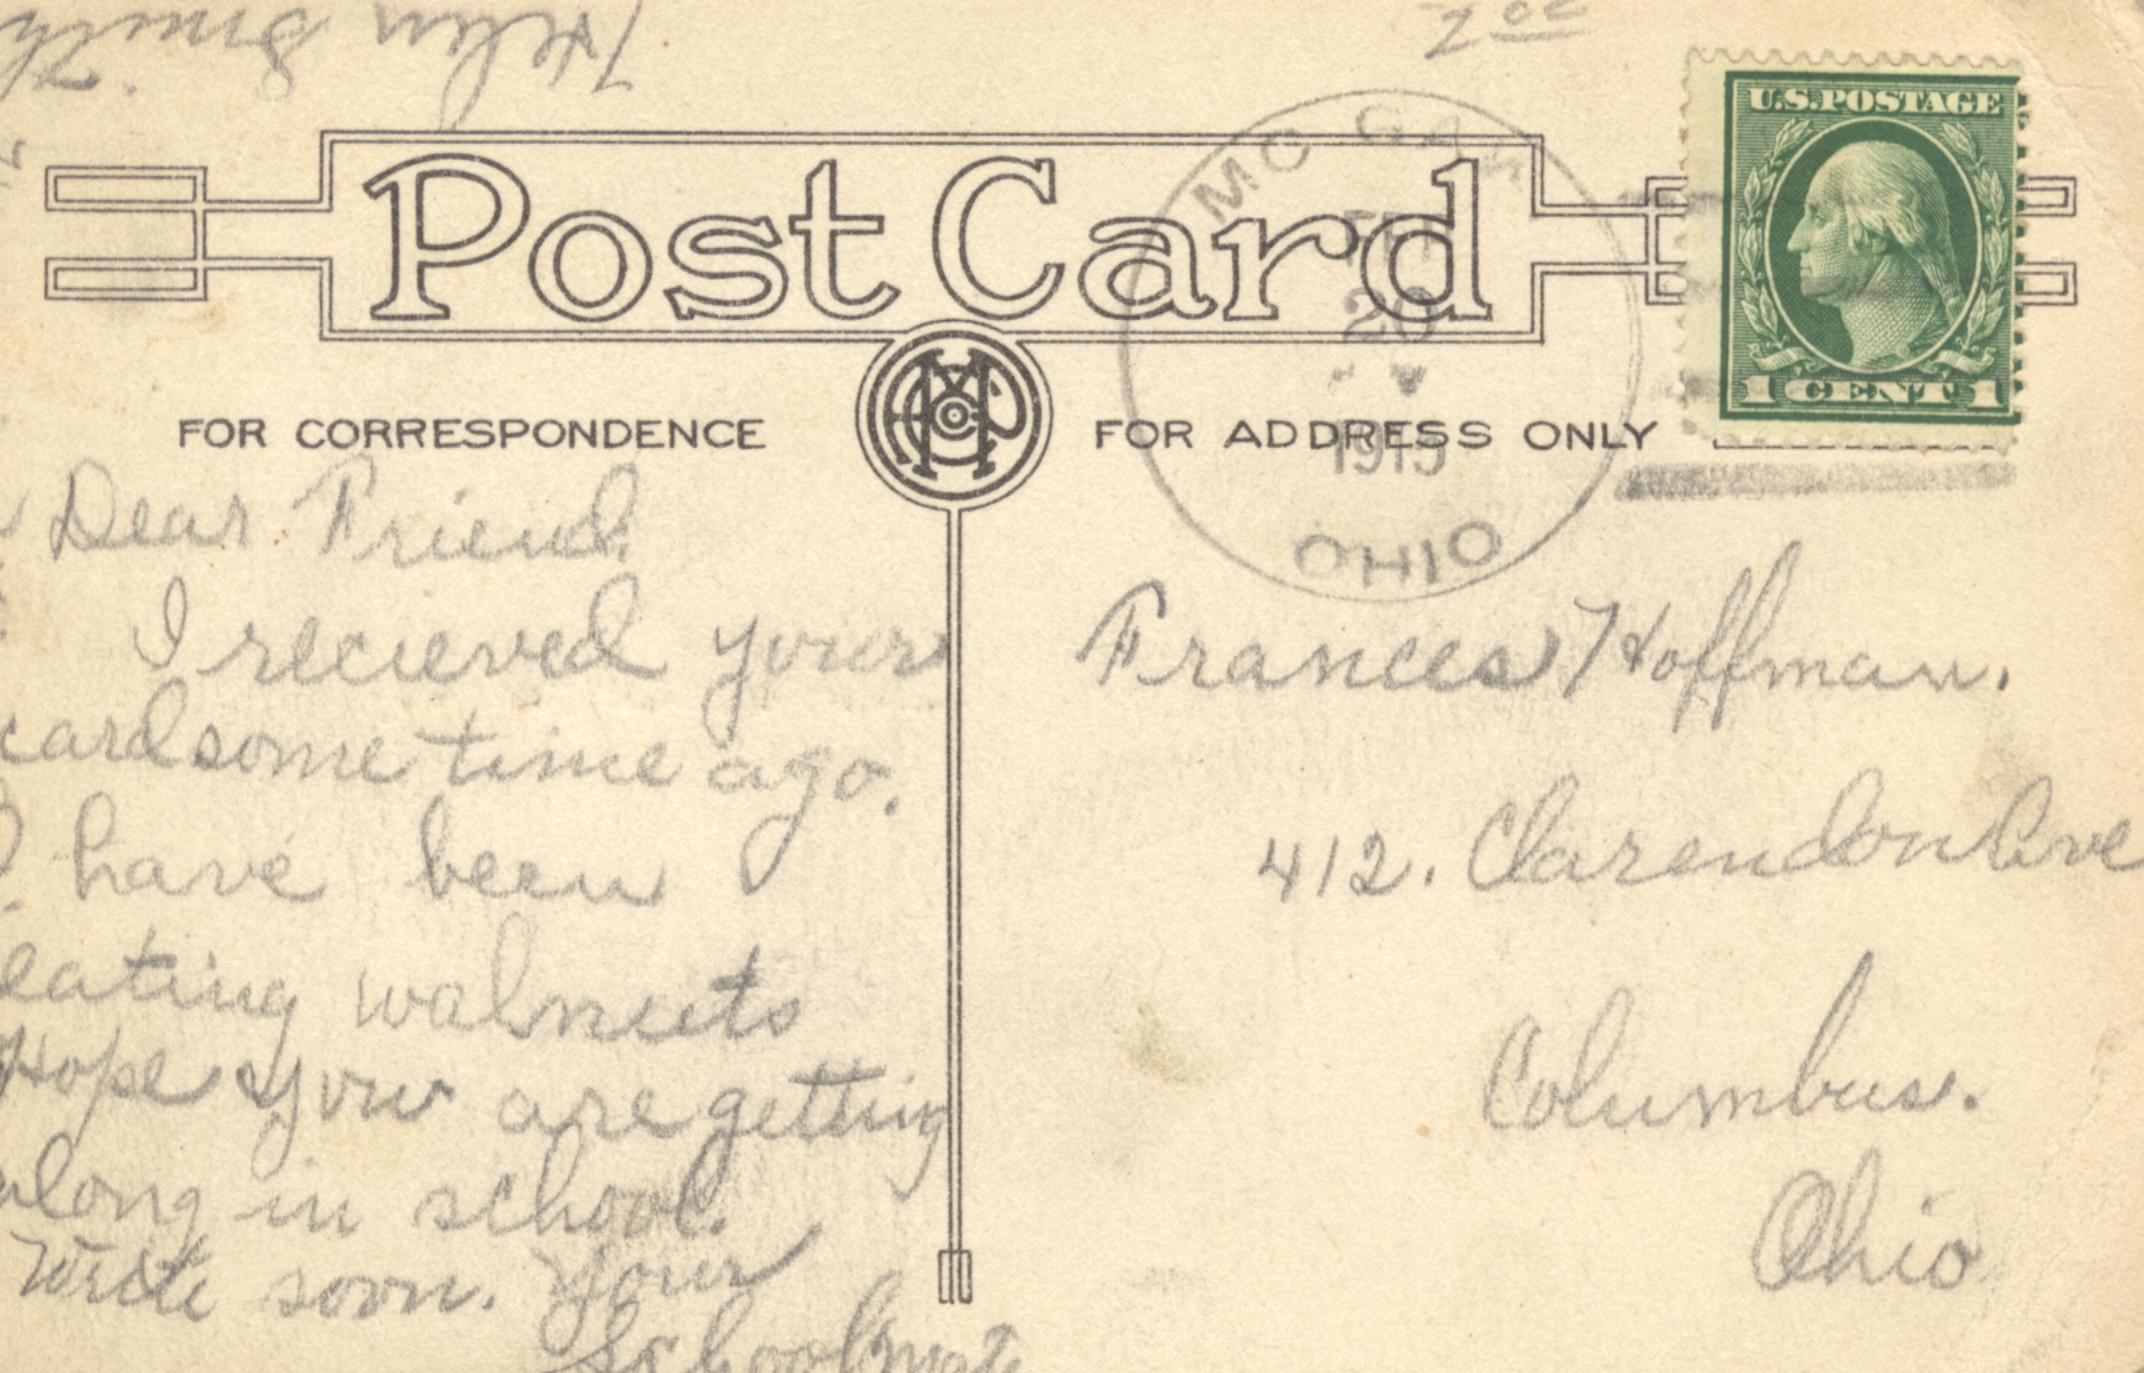 Helen Smith
2 oc
U.S.POSTAGE
1 CENT 1
Post Card
MC
20
1915
OHIO
FOR CORRESPONDENCE
FOR ADDRESS ONLY
Dear Friend.
I recieved your
card some time ago.
I have been
eating walnuts
Hope you are getting
along in school.
Write soon. Your
Schoolmate
Frances Hoffman.
412. Clarendon Ave
Columbus.
Ohio